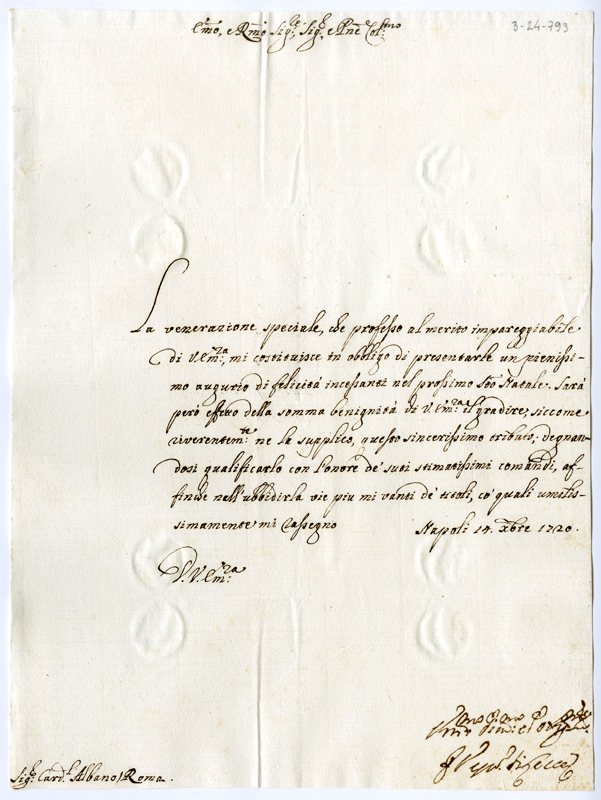 Em̃o, e Rm̃o Sig.re Sig.r e Pñe Col.mo
3-24-793
La venerazione speciale, che professo al merito impareggiabile
di V. Em.za, mi costituisce in obbligo di presentarle un pienissi-
mo augurio di felicità incessanti nel prossimo S͠to Natale. Sarà
però effetto della somma benignità di V. Em.za il gradire, siccome
riverentem.te ne la supplico, questo sincerissimo tributo, degnan-
dosi qualificarlo con l'onore de' suoi stimatissimi comandi, af-
finche nell'ubbidirla vie più mi vanti de' titoli, co' quali umilis-
simamente mi rassegno Napoli 14. Xbre 1720.
D. V. Em.za
Sig.r Card.l Albano / Roma.